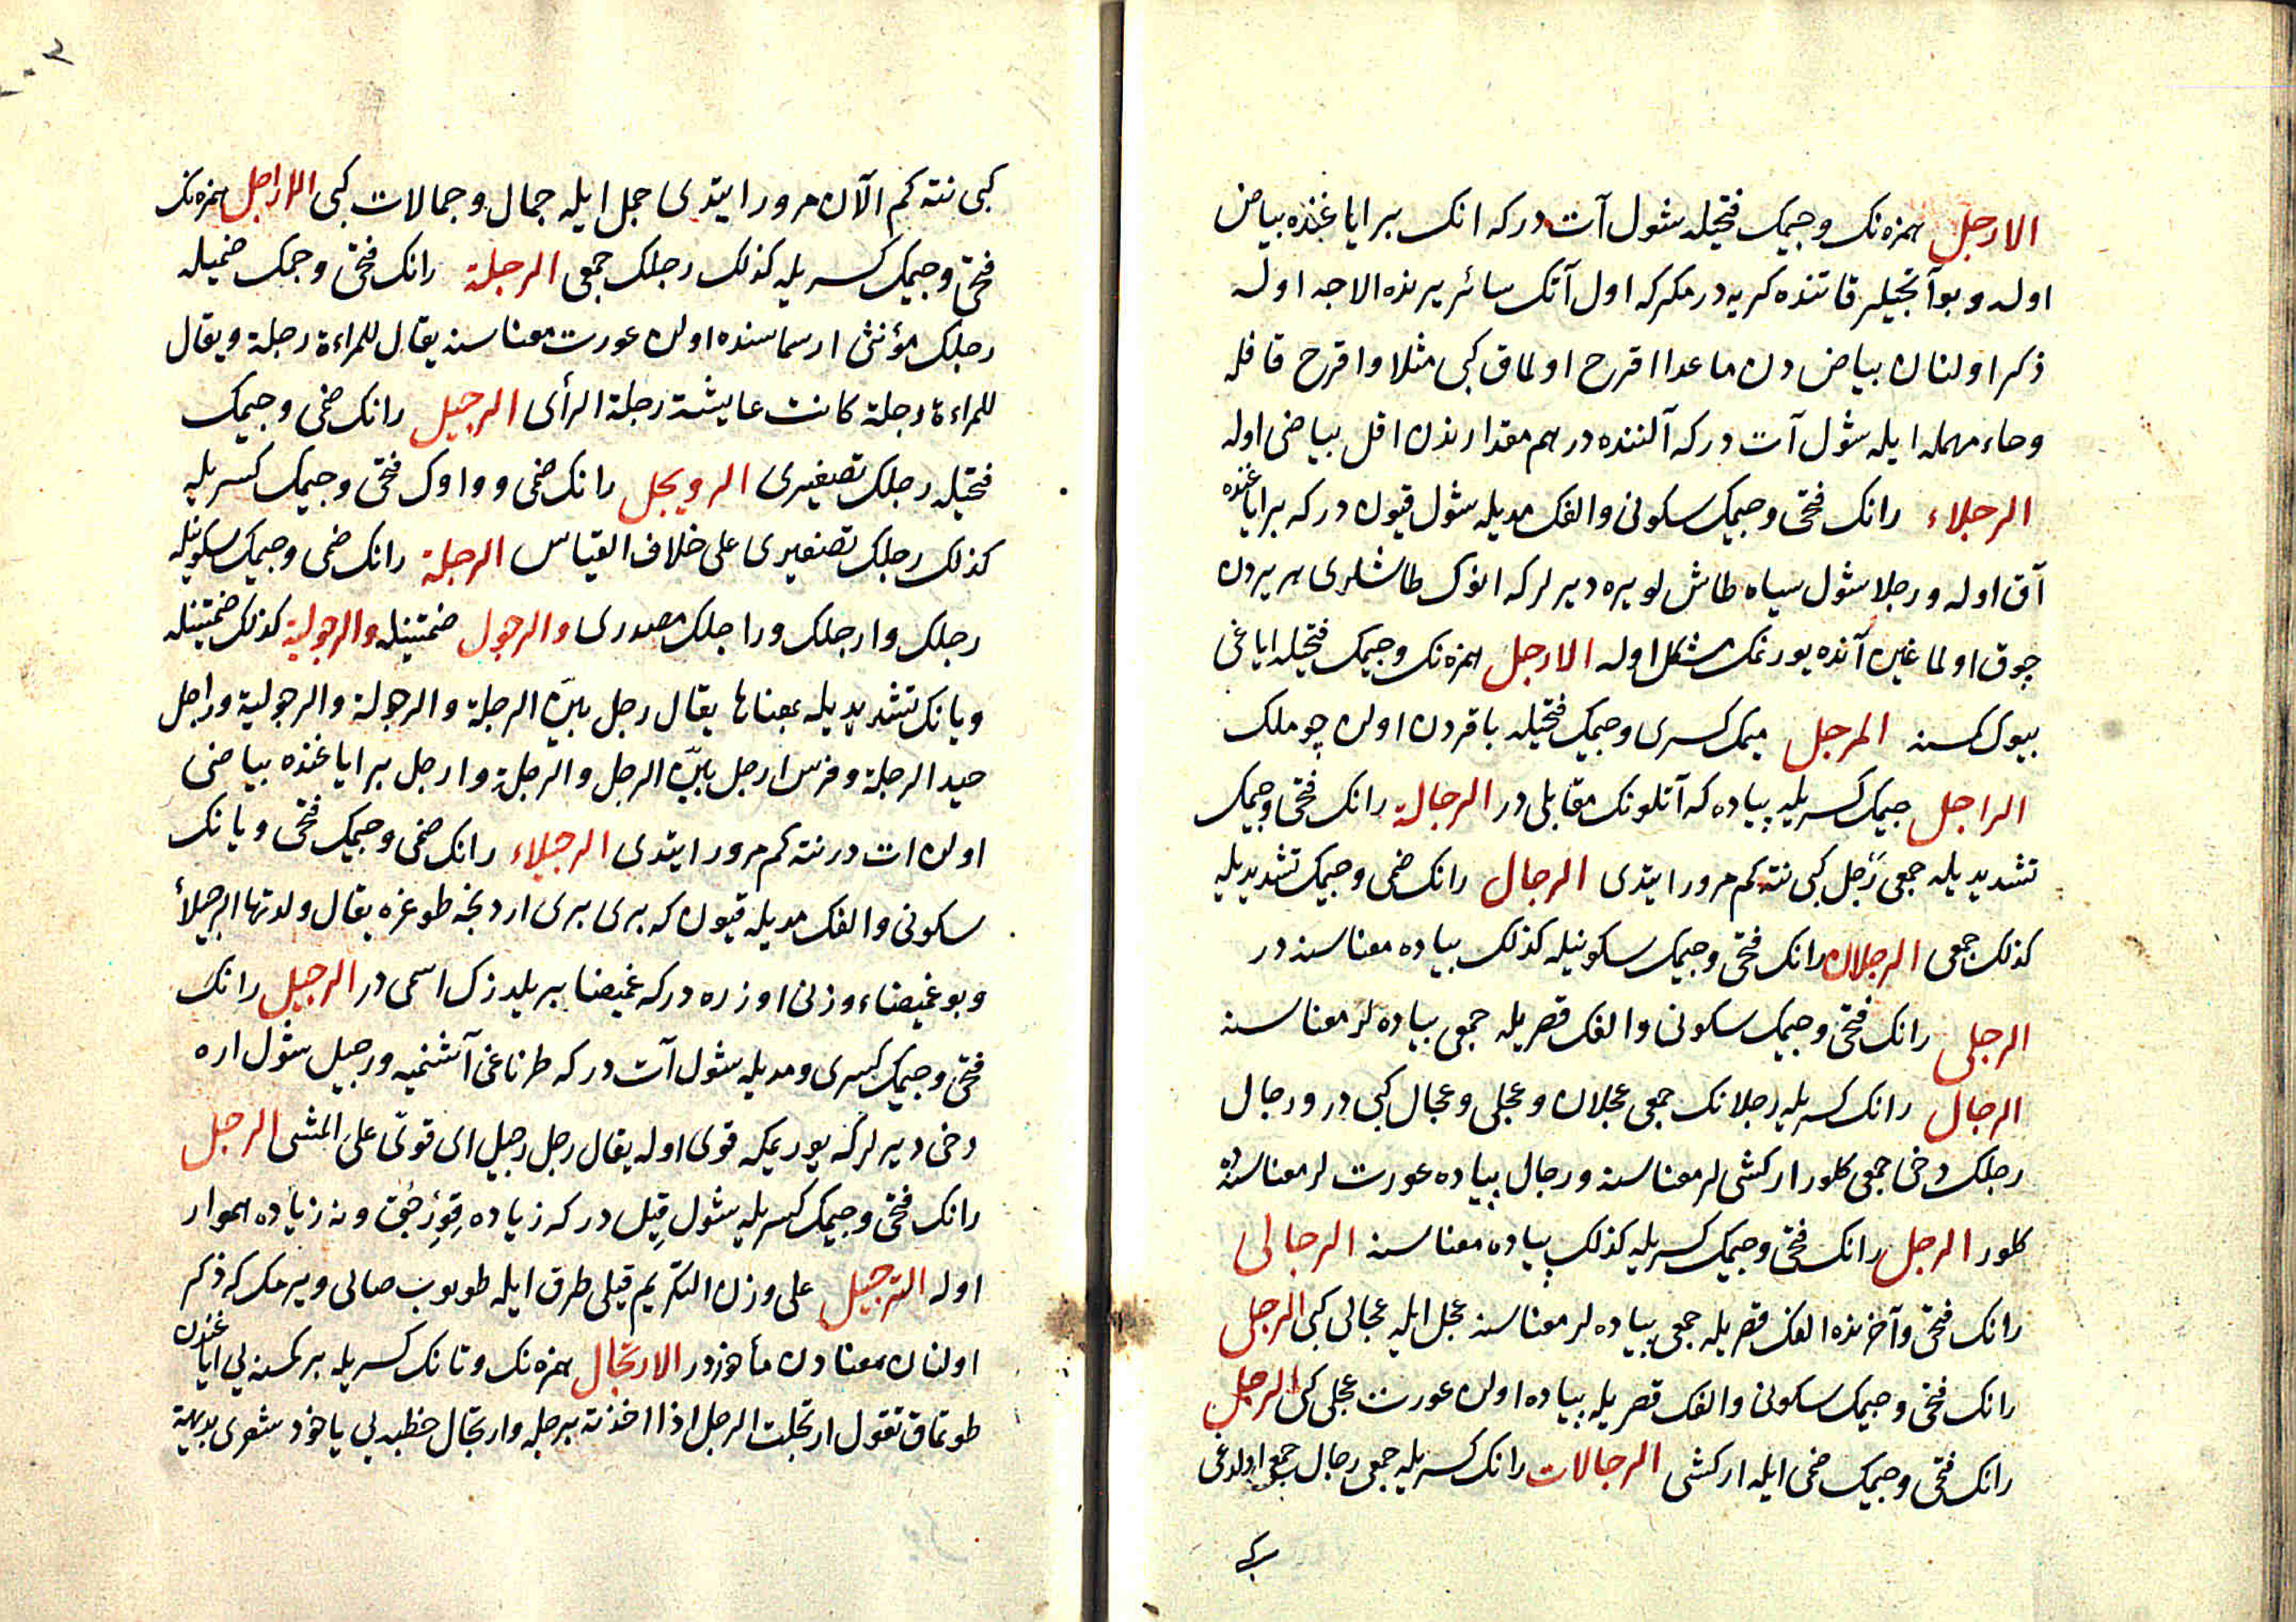 الارجل همزه نك وجيمك فتحيله شول آت در كه انك بر اياغنده بياض
اوله وبو آتجيلر قاتنده كريه در مكر كه اول آتك سائر يرنده الاجه اوله
ذكر اولنان بياض دن ماعدا اقرح اولماق كبى مثلا واقرح قافله
وحاء مهمله ايله شول آت در كه آلننده درهم مقدارندن اقل بياضى اوله
الرجلاء رانك فتحى وجيمك سكونى والفك مديله شول قيون در كه بر اياغنده
آق اوله ورجلا شول سياه طاش لو يره ديرلر كه انوك طاشلرى بر بردن
چوق اولماغين آنده يورنمك مشكل اوله الارجل همزه نك وجيمك فتحيله اياغى
بيوك كمسنه المرجل ميمك كسرى وجيمك فتحيله باقردن اولن چوملك
الراجل جيمك كسريله پياده كه آتلونك مقابلى در الرجالة رانك فتحى وجيمك
تشديديله جمعى رَجل كبى نته كم مرور ايتدى الرجال رانك ضمى وجيمك تشديديله
كذلك جمعى الرجلان رانك فتحى وجيمك سكونيله كذلك بياده معناسنه در
الرجلى رانك فتحى وجيمك سكونى والفك قصريله جمعى بياده لر معناسنه
الرجال رانك كسريله رجلانك جمعى عجلان وعجلى وعجال كبى در ورجال
رجلك دخى جمعى كلور ار كشى لر معناسنه ورجال پياده عورت لر معناسنه
كلور الرجل رانك فتحى وجيمك كسريله كذلك پياده معناسنه الرجالى
رانك فتحى وآخرنده الفك قصريله جمعى پياده لر معناسنه عجل ايله عجالى كبى الرجلى
رانك فتحى وجيمك سكونى والفك قصريله پياده اولن عورت عجلى كبى الرجل
رانك فتحى وجيمك ضمى ايله ار كشى الرجالات رانك كسريله جمعى رجال جمعى اولدغى
كبى
كبى نته كم الآن مرور ايتدى جمل ايله جمال وجمالات كبى الاراجل همزه نك
فتحى وجيمك كسريله كذلك رجلك جمعى الرجلة رانك فتحى وجمك ضميله
رجلك مؤنثى ار سماسنده اولن عورت معناسنه يقال للمراءة رجلة ويقال
للمراءة رجلة كانت عايشة رجلة الرأى الرجيل رانك ضمى وجيمك
فتحيله رجلك تصغيرى الرويجل رانك ضمى وواوك فتحى وجيمك كسريله
كذلك رجلك تصغيرى على خلاف القياس الرجلة رانك ضمى وجيمك سكونيله
رجلك وارجلك وراجلك مصدرى والرجول ضمتينله والرجولية كذلك ضمتينله
ويانك تشديديله بمعناها يقال رجل بيّن الرجلة والرجولة والرجولية وراجل
جيد الرجلة وفرس ارجل بيّن الرجل والرجلة وارجل بر اياغنده بياضى
اولن ات در نته كم مرور ايتدى الرجيلاء رانك ضمى وجيمك فتحى ويانك
سكونى والفك مديله قيون كه برى برى اردنجه طوغره يقال ولدتها الرجيلأ
وبو غميصاء وزنى اوزره در كه غميصا بر يلدزك اسمى در الرجيل رانك
فتحى وجيمك كسرى ومديله شول آت در كه طرناغى آشنميه ورجيل شول اره
دخى ديرلر كه يوريمكه قوى اوله يقال رجل رجيل اى قوىّ على المشى الرجل
رانك فتحى وجيمك كسريله شول قِيل در كه زياده قِوِرْجُق ونه زياده هموار
اوله الترجيل على وزن التكريم قيلى طرق ايله طوبوب صالى ويرمك كه ذكر
اولنان معنادن مأخوذدر الارتجال همزه نك وتانك كسريله بر كمسنه يى اياغندن
طوتماق تقول ارتجلت الرجل اذا اخذته برجله وارتجال خطبه يى ياخود شعرى بديهة